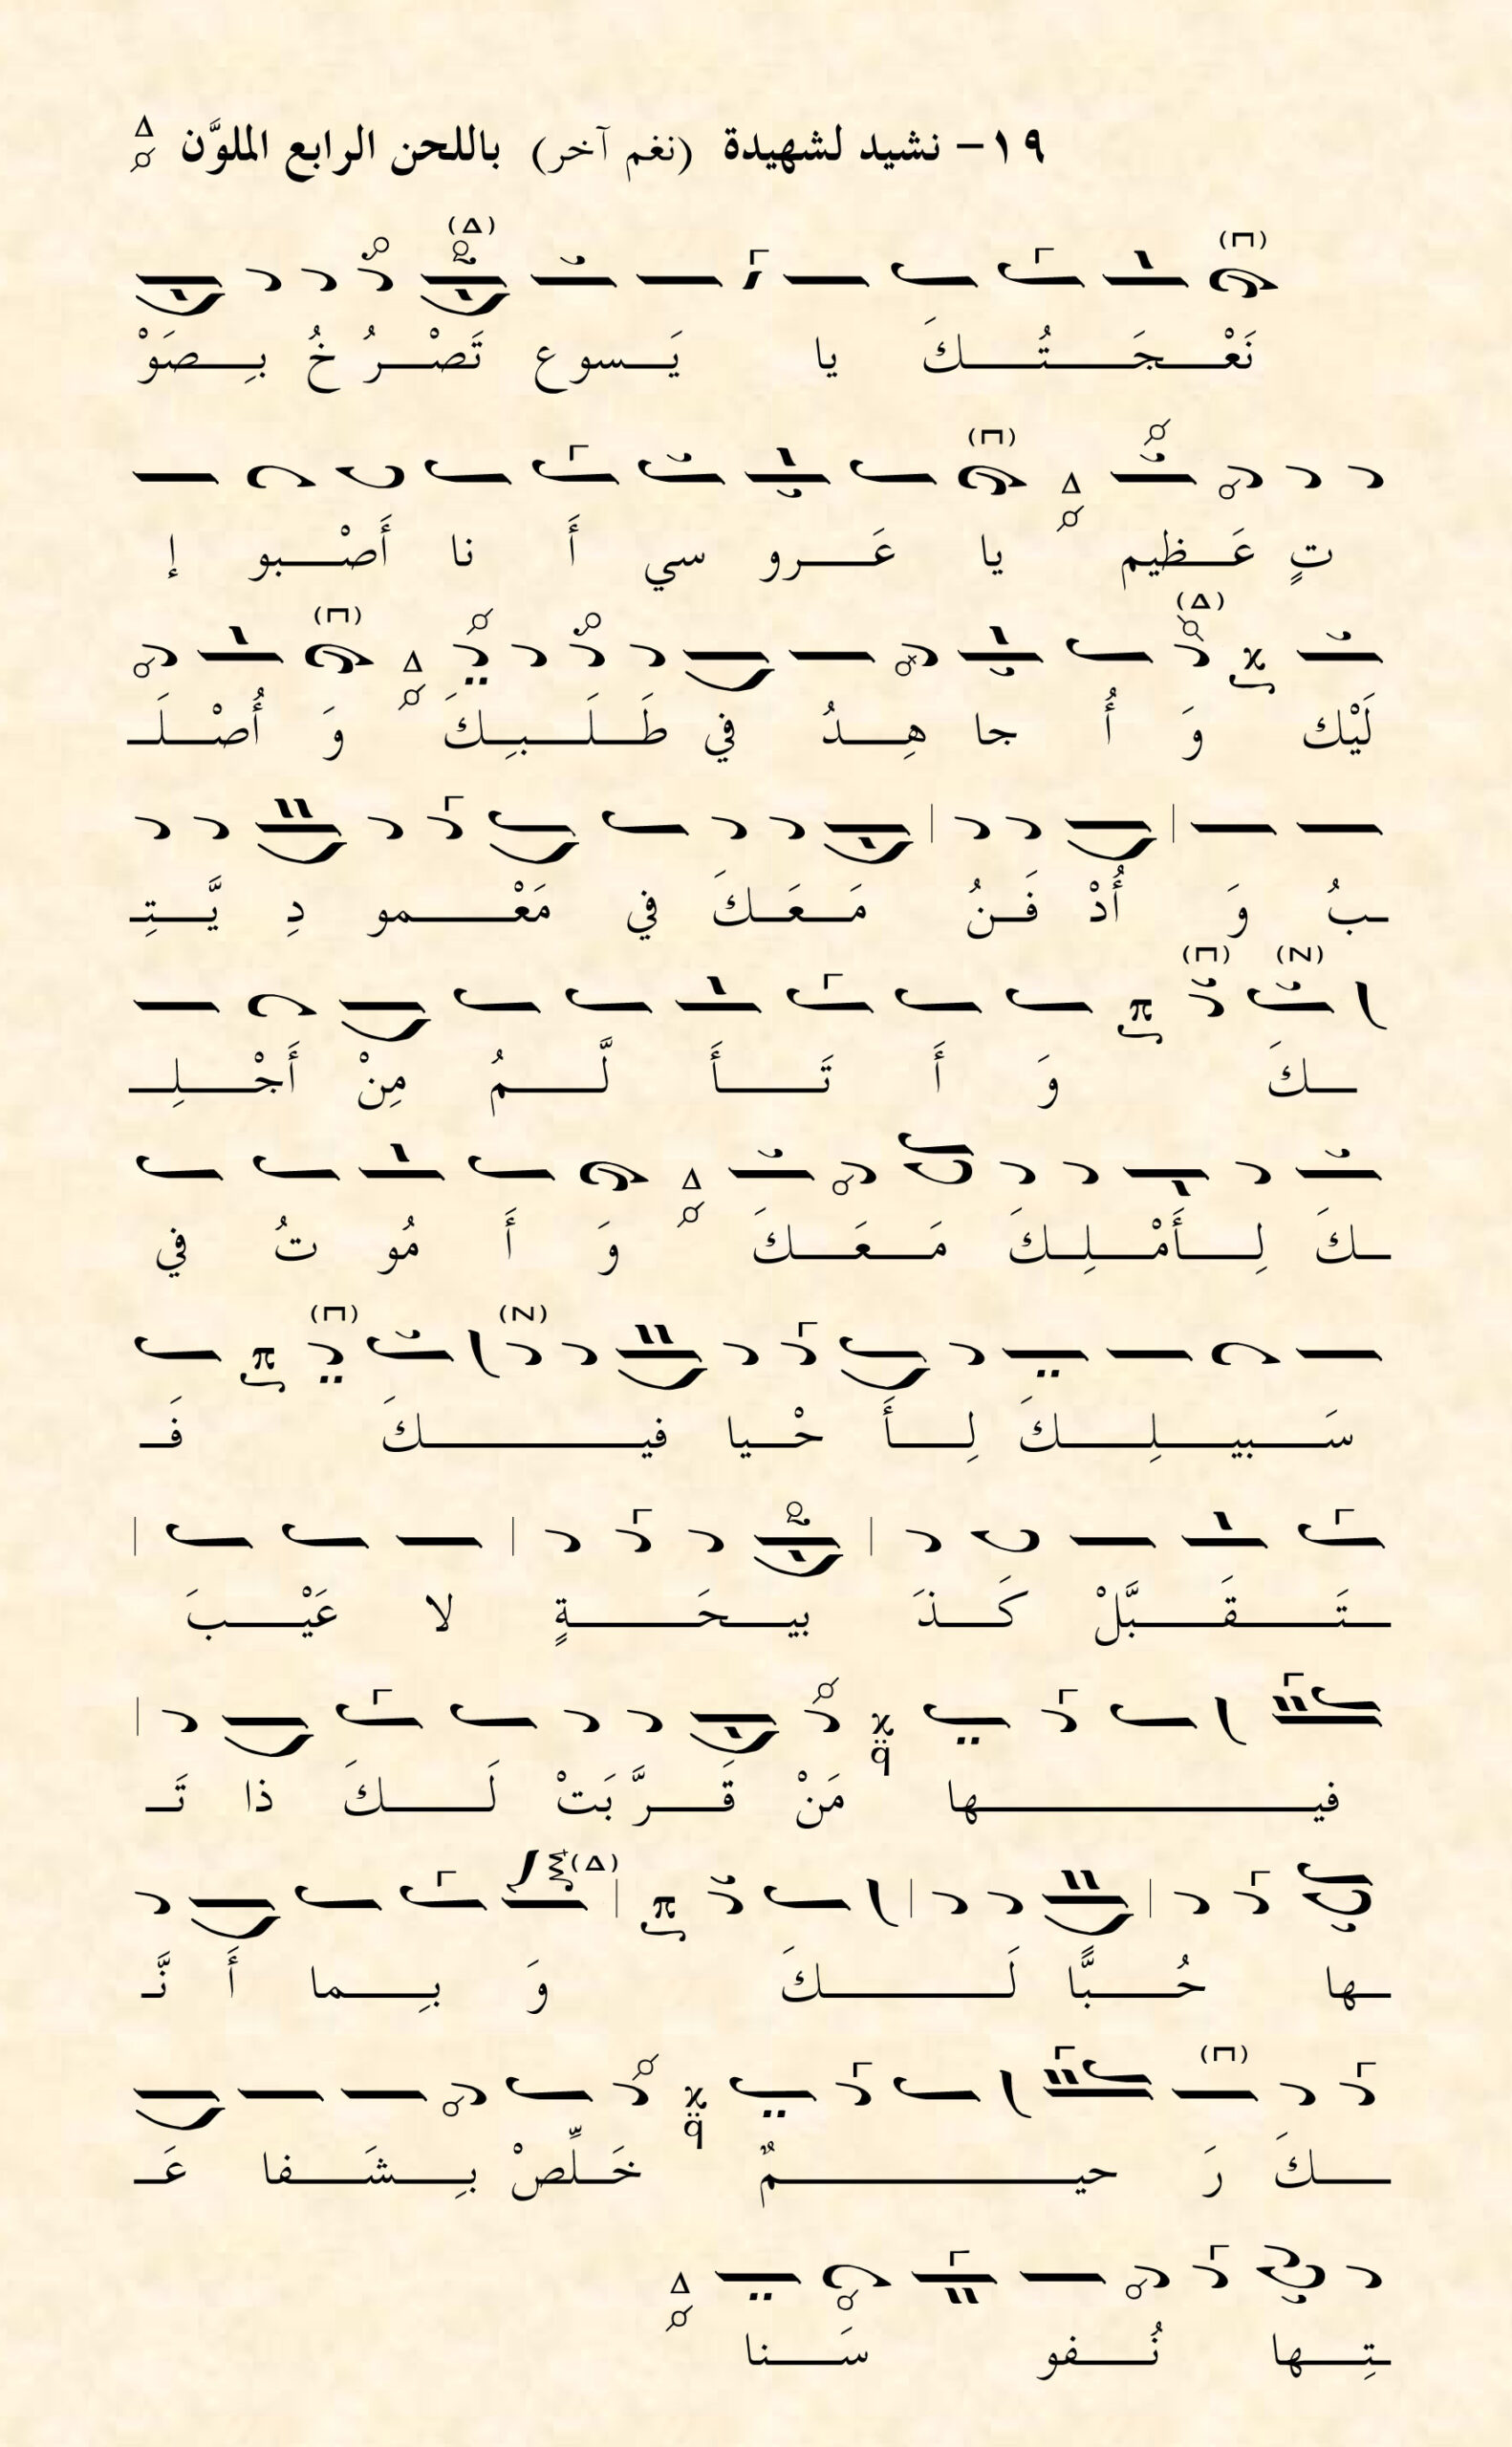 ١٩- نشيد لشهيدة (نغم آخر) باللحن الرابع الملوَّن
نَعْـجَـتُـكَ يا يَـسوع تَصْـرُخُ بِـصَوْ
تٍ عَـظيم يا عَـرو سي أَ نا أَصْـبو إ
لَيْك وَ أُ جا هِـدُ في طَـلَـبِـكَ وَ أُصْـلَـ
ـبُ وَ أُدْ فَـنُ مَـعَـكَ في مَعْـمو دِ يَّـتِـ
ـكَ وَ أَ تَـأَ لَّـمُ مِنْ أَجْـلِـ
ـكَ لِـأَمْـلِـكَ مَـعَـكَ وَ أَ مُو تُ في
سَـبيـلِـكَ لِـأَ حْـيا فيـكَ فَـ
ـتَـقَـبَّلْ كَـذَ بيـحَـةٍ لا عَيْـبَ
فيـها مَنْ قَـرَّبَتْ لَـكَ ذا تَـ
ـها حُـبًّا لَـكَ وَ بِـما أَ نَّـ
ـكَ رَ حيـمٌ خَـلِّصْ بِـشَـفا عَـ
ـتِـها نُـفو سَـنا